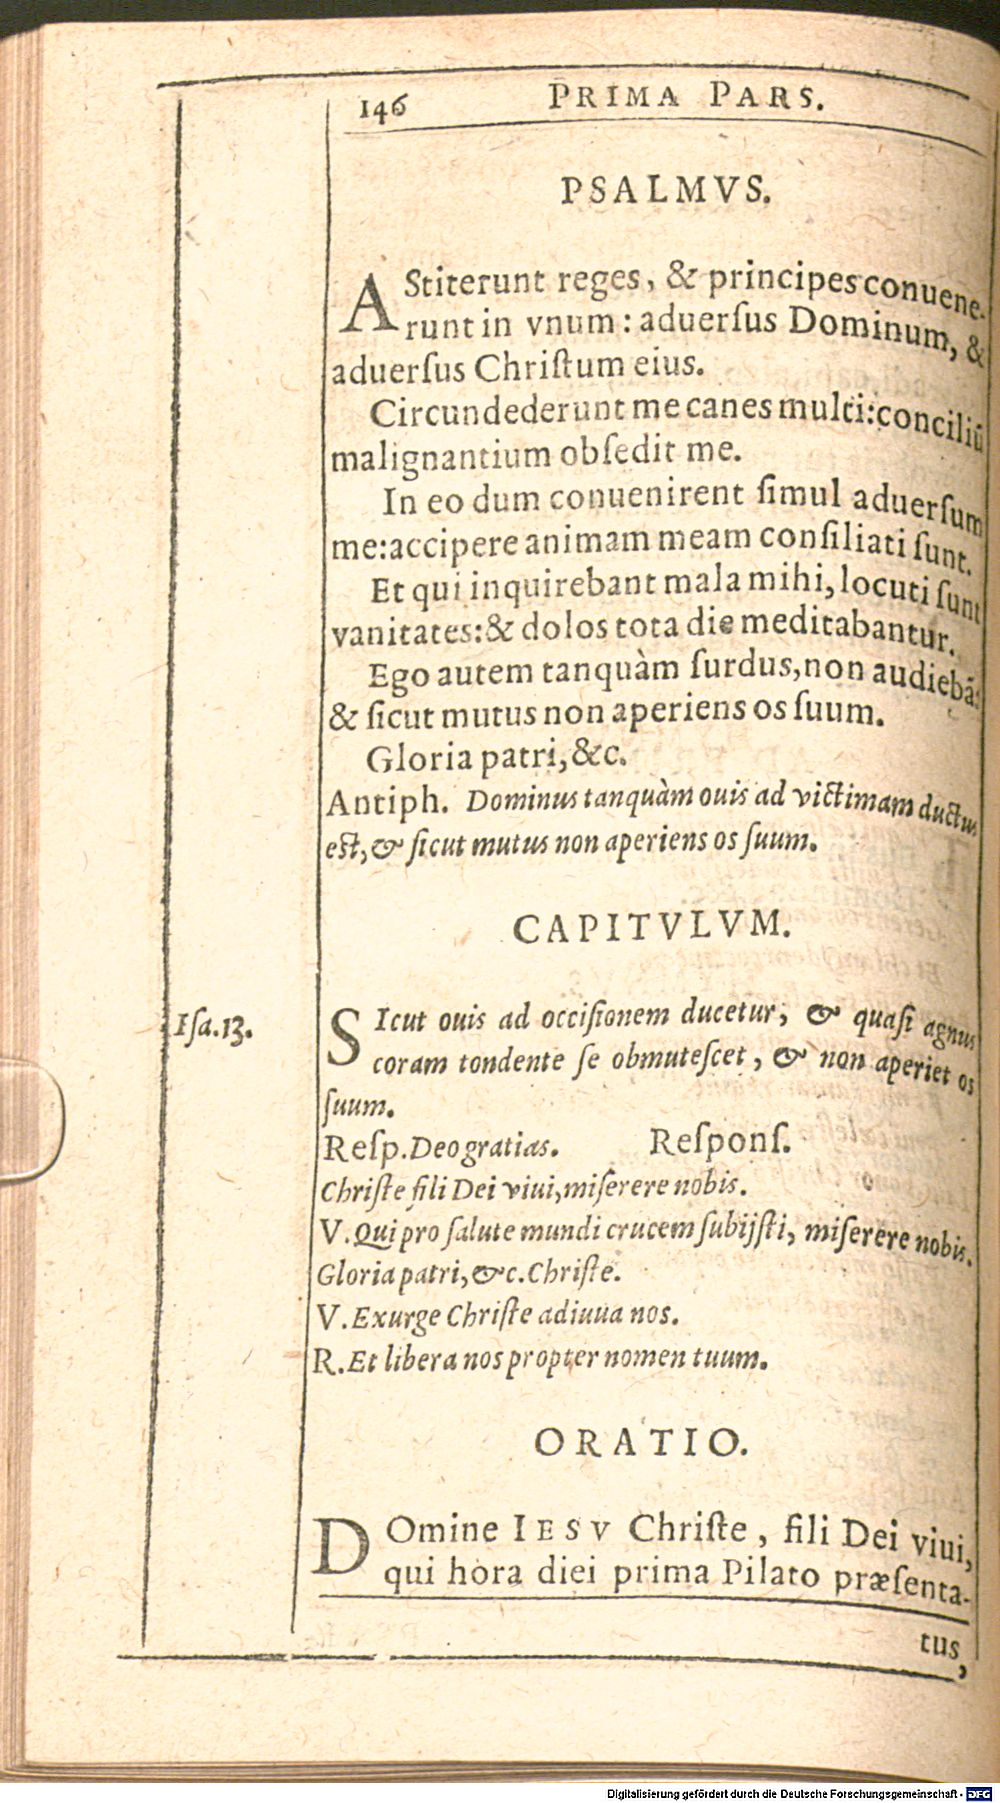 146 PRIMA PARS.
PSALMVS.
AStiterunt reges, & principes conuene-
runt in vnum: aduerſus Dominum, &
aduerſus Chriſtum eius.
Circundederunt me canes multi: conciliū
malignantium obſedit me.
In eo dum conuenirent ſimul aduerſum
me: accipere animam meam conſiliati ſunt.
Et qui inquirebant mala mihi, locuti ſunt
vanitates: & dolos tota die meditabantur.
Ego autem tanquàm ſurdus, non audiebā:
& ſicut mutus non aperiens os ſuum.
Gloria patri, &c.
Antiph. Dominus tanquàm ouis ad victimam ductus
eſt, & ſicut mutus non aperiens os ſuum.
CAPITVLVM.
Iſa.13.
SIcut ouis ad occiſionem ducetur, & quaſi agnus
coram tondente ſe obmuteſcet, & non aperiet os
ſuum.
Reſp. Deo gratias. Reſponſ.
Chriſte fili Dei viui, miſerere nobis.
V. Qui pro ſalute mundi crucem ſubijſti, miſerere nobis.
Gloria patri, &c. Chriſte.
V. Exurge Chriſte adiuua nos.
R. Et libera nos propter nomen tuum.
ORATIO.
DOmine IESV Chriſte, fili Dei viui,
qui hora diei prima Pilato præſenta-
tus,
Digitalisierung gefördert durch die Deutsche Forschungsgemeinschaft - DFG